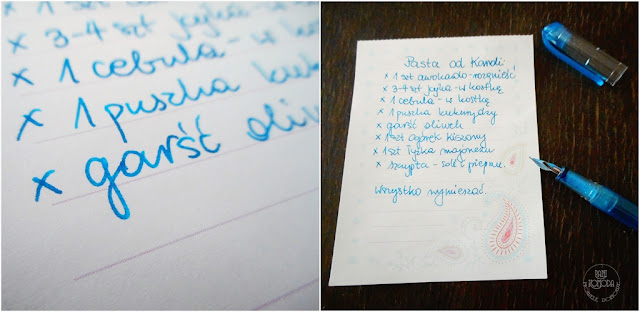 x 3-4 szt jajka - w ko
x 1 cebula - w k
x 1 puszka kuku
x garść oliw
Pasta od Karoli
x 1 szt awokado - rozgnieść
x 3-4 szt jajka - w kostkę
x 1 cebula - w kostkę
x 1 puszka kukurydzy
x garść oliwek
x 1 szt ogórek kiszony
x 1 szt łyżka majonezu
x szczypta - soli i pieprzu.
Wszystko wymieszać.